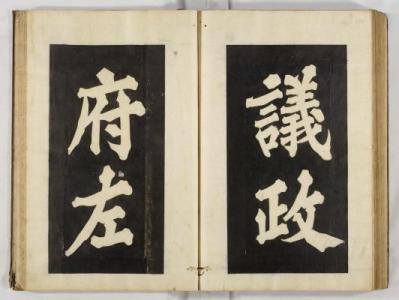 議政
府左